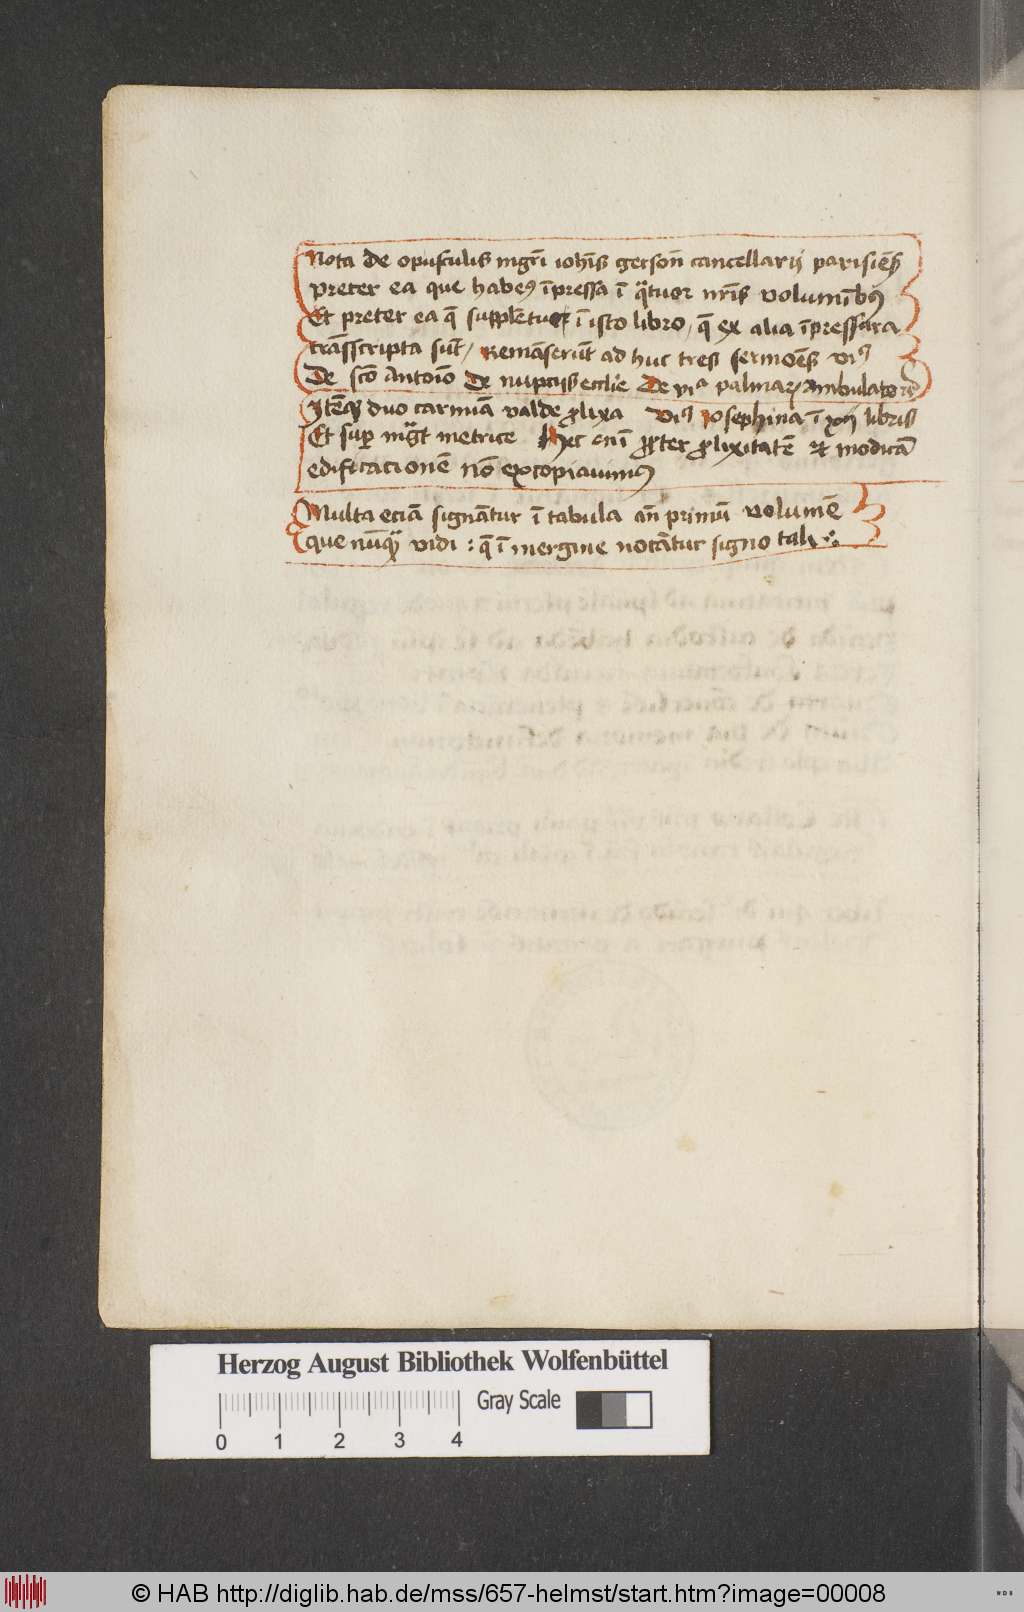 Nota de opusculis mgri̅ ioh̅is gerson̅ cancellarij parisien̅
preter ea que habeꝰ i̅pressa i̅ qͣtuor nr̅is volumi̅bꝰ
Et preter ea q̅ supplet̅ur i̅ isto libro / q̅ ex alia i̅pressura
tra̅sscripta su̅t / Rema̅seru̅t ad huc tres sermo̅es vꝫ
De sc̅o Antoi̅o De nupcijs eccl̅ie De viͣ palmaꝝ
Ite̅qꝫ duo carmi̅a valde ꝓlixa vꝫ Iosephina i̅ xij libris
Et sup̲ mg̅t metrice Hec eni̅ ꝓpter ꝓlixitate̅ et modica̅
edificacione̅ no̅ excopiauimus
Multa ecia̅ signa̅tur i̅ tabula an̅ primu̅ volume̅
que nu̅qͣꝫ vidi : q̅ i̅ mergine nota̅tur signo tali
Herzog August Bibliothek Wolfenbüttel
0 1 2 3 4
Gray Scale
© HAB http://diglib.hab.de/mss/657-helmst/start.htm?image=00008